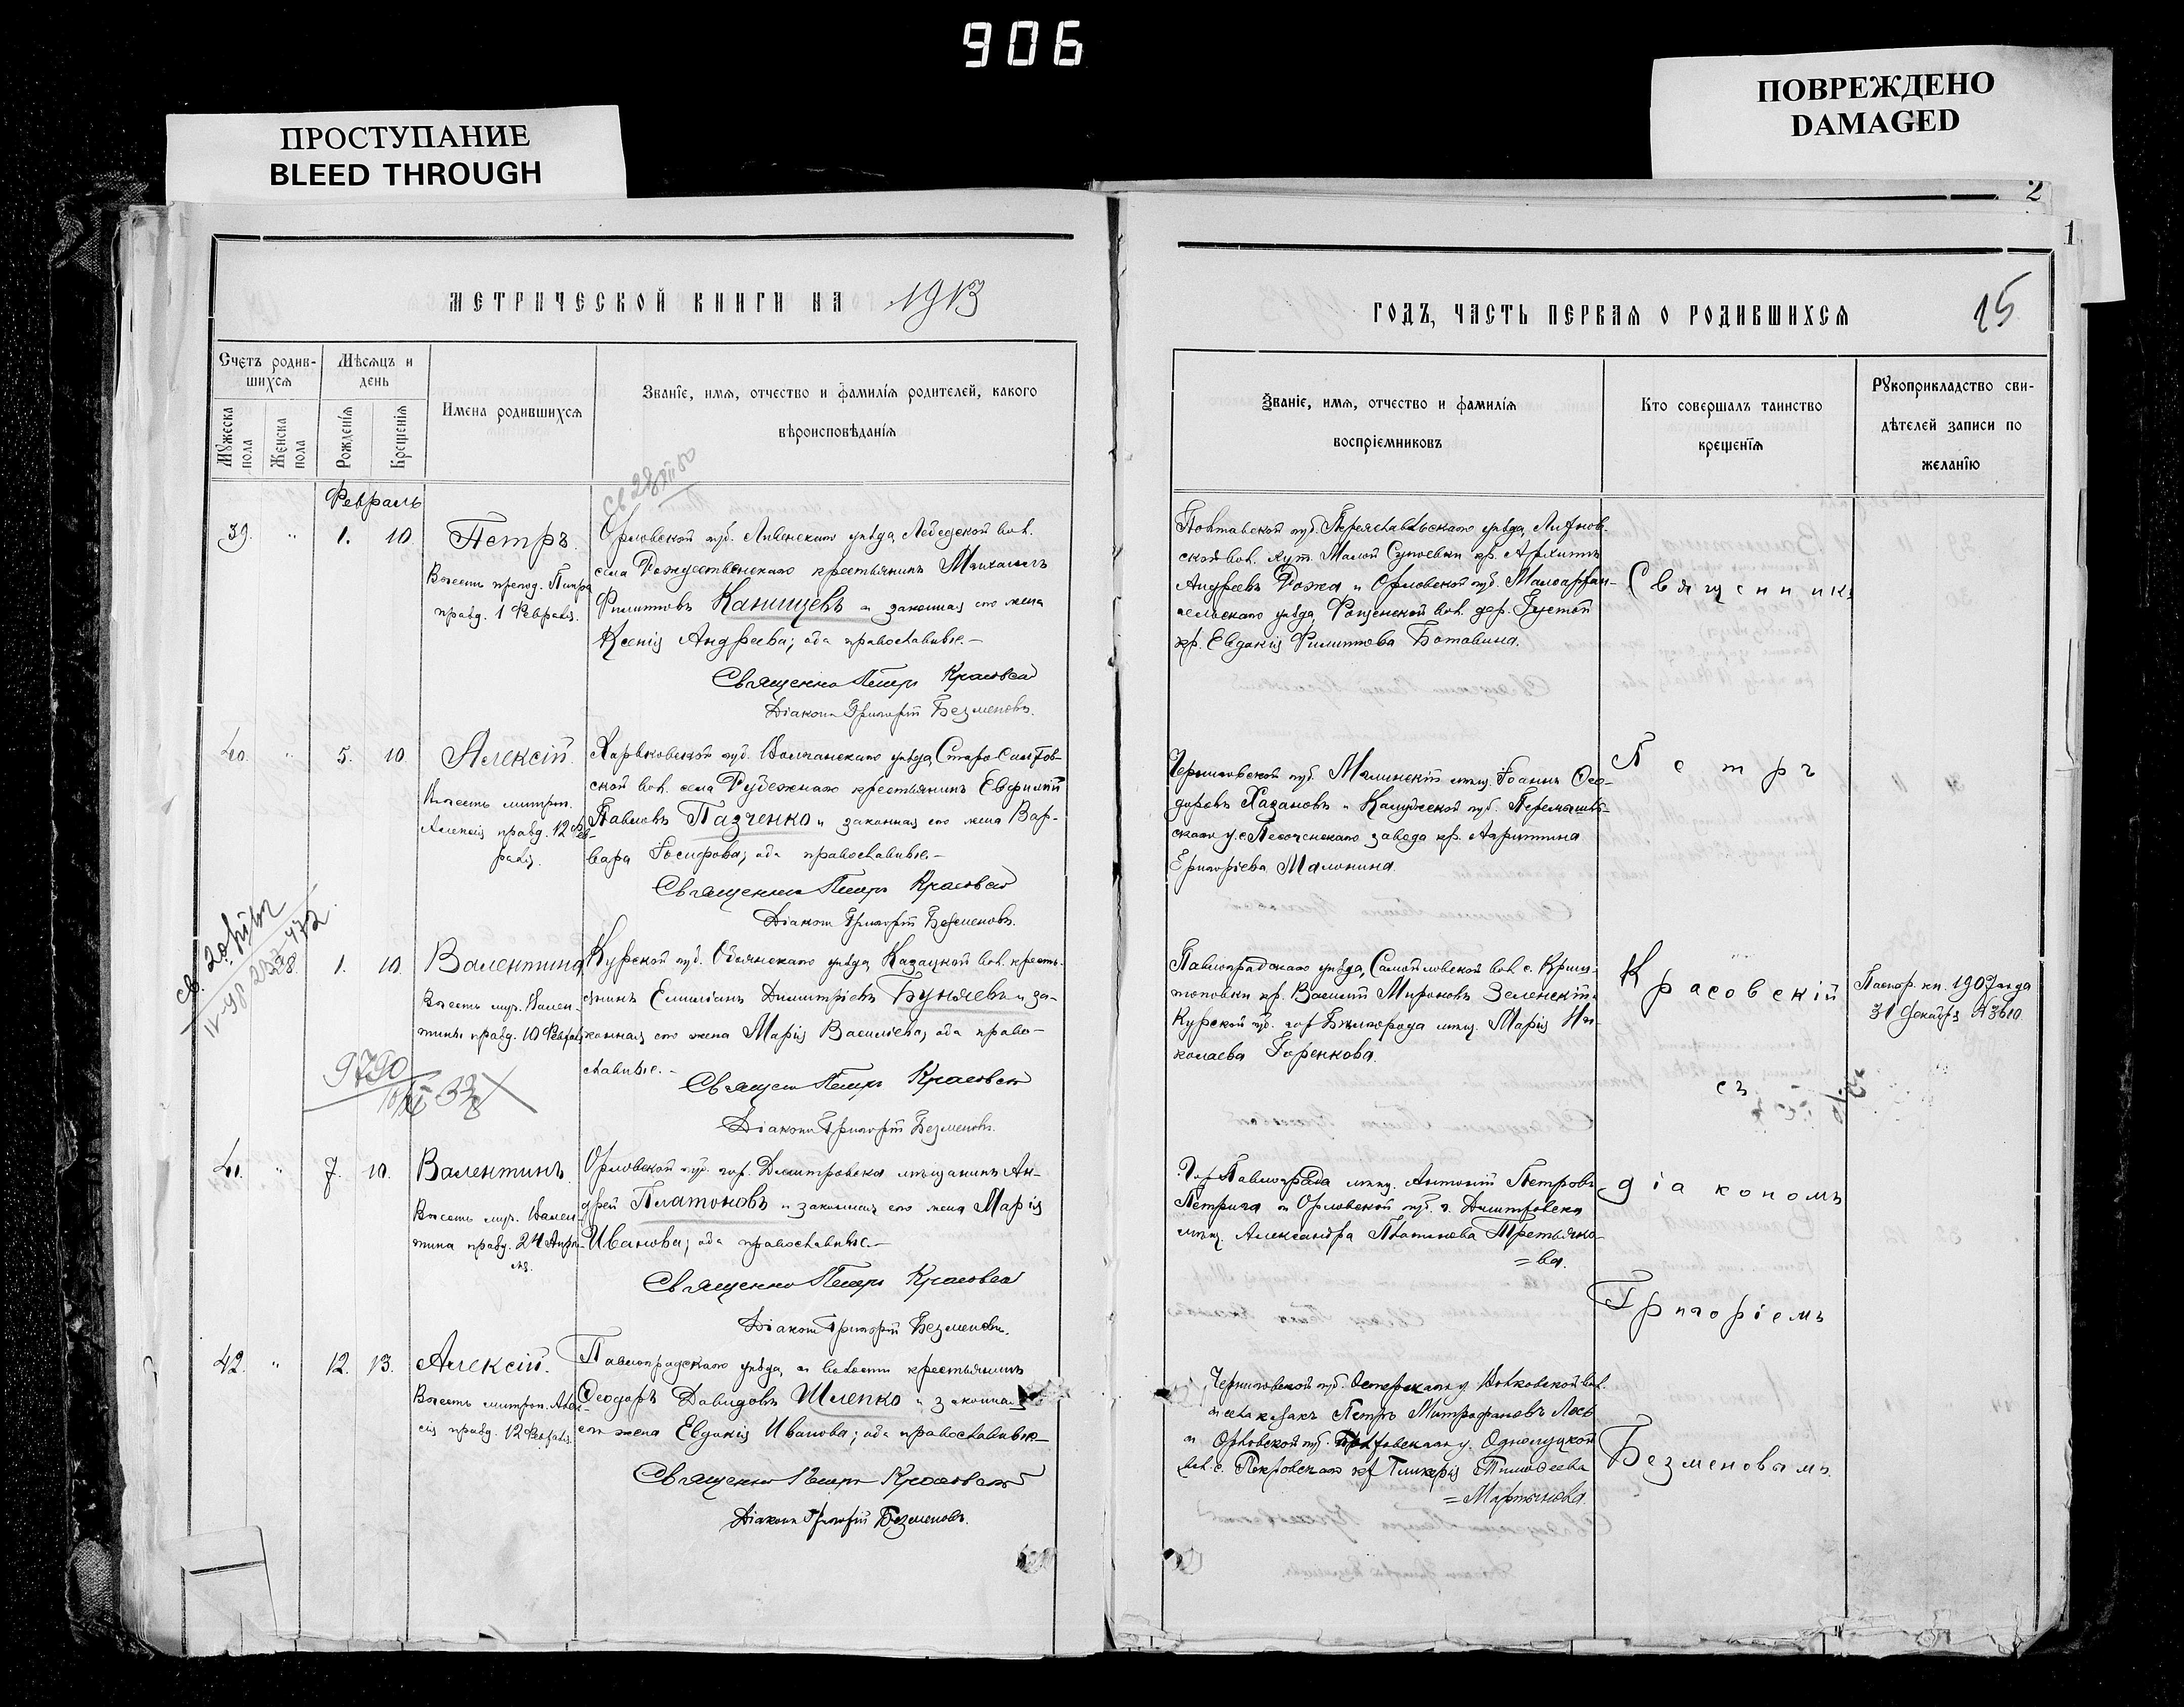 906
ПРОСТУПАНИЕ
BLEED THROUGH
ПОВРЕЖДЕНО
DAMAGED
2
1
МЕТРИЧЕСКОЙ КНИГИ НА 1913
Счетъ родив-
шихся
Мѣсяцъ и
день
Имена родившихся
Званіе, имя, отчество и фамилія родителей, какого
вѣроисповѣданія
Мужеска пола
Женска пола
Рожденія
Крещенія
Февраль
39. " 1. 10. Петръ.
Въ честь препод. Петра
празд. 1 Февраля.
Орловской губ. Ливенскаго уѣзда, Лебедской вол.
села Рождественскаго крестьянинъ Михаилъ
Филипповъ Канищевъ и законная его жена
Ксенія Андреева; оба православные.-
Священникъ Петръ Красовскій
Діаконъ Григорій Безменовъ.
40. " 5. 10. Алексій.
Въ честь митроп.
Алексія празд. 12 Фев-
раля.
Харьковской губ. Волчанскаго уѣзда, Старо-Салтов-
ской вол. села Рубежнаго крестьянинъ Евфимій
Павловъ Пазченко и законная его жена Вар-
вара Іосифова; оба православные.-
Священникъ Петръ Красовскій
Діаконъ Григорій Безменовъ.
28. 1. 10. Валентина
Въ честь муч. Вален-
тины празд. 10 Февраля
Курской губ. Обоянскаго уѣзда, Казацкой вол. кресть-
янинъ Емиліанъ Димитріевъ Буняевъ и за-
конная его жена Марія Васильева; оба право-
славные.-
Священникъ Петръ Красовскій
Діаконъ Григорій Безменовъ.
9790
41. " 7. 10. Валентинъ.
Въ честь муч. Вален-
тина празд. 24 Апрѣ-
ля.
Орловской губ. гор. Дмитровска мѣщанинъ Ан-
дрей Платоновъ и законная его жена Марія
Иванова; оба православные.-
Священникъ Петръ Красовскій
Діаконъ Григорій Безменовъ.
42. " 12. 13. Алексій.
Въ честь митроп. Алек-
сія празд. 12 Февраля.
Павлоградскаго уѣзда, и волости крестьянинъ
Ѳеодоръ Давидовъ Шлепко и законная
его жена Евдокія Иванова; оба православные-
Священникъ Петръ Красовскій
Діаконъ Григорій Безменовъ.
ГОДЪ, ЧАСТЬ ПЕРВАЯ О РОДИВШИХСЯ
15
Званіе, имя, отчество и фамилія
воспріемниковъ
Кто совершалъ таинство
крещенія
Рукоприкладство сви-
дѣтелей записи по
желанію
Полтавской губ. Переяславльскаго уѣзда,
ской вол. хут. Малой Супоевки кр. Архиппъ
Андреевъ Рожа и Орловской губ. Малоархан-
гельскаго уѣзда, вол. дер. Густой
кр. Евдокія Филиппова Ботавина.
Черниговской губ. Мглинскій мѣщ. Іоаннъ Ѳео-
доровъ Хазановъ и Калужской губ. Перемышль-
скаго у. с. Песоченскаго завода кр. Агриппина
Григоріева Малонина.
Павлоградскаго уѣзда, Самойловской вол. с.
кр. Василій Мироновъ Зеленскій и
Курской губ. гор. Бѣлгорода мѣщ. Марія Ни-
колаева Горенкова.
Гор. Павлограда мѣщ. Антоній Петровъ
Петрига и Орловской губ. г. Дмитровска
мѣщ. Александра Платонова Третьяко-
=ва.
Черниговской губ. Остерскаго у. вол.
и села козакъ Петръ Митрофановъ Лось
и Орловской губ. у. Однолуцкой
вол. с. Покровскаго кр. Гликерія Тимоѳеева
=Мартынова.
Священникъ
Петръ
Красовскій
съ
діакономъ
Григоріемъ
Безменовымъ.
Паспор. кн. 1907 года
31 Декабря № 3610.